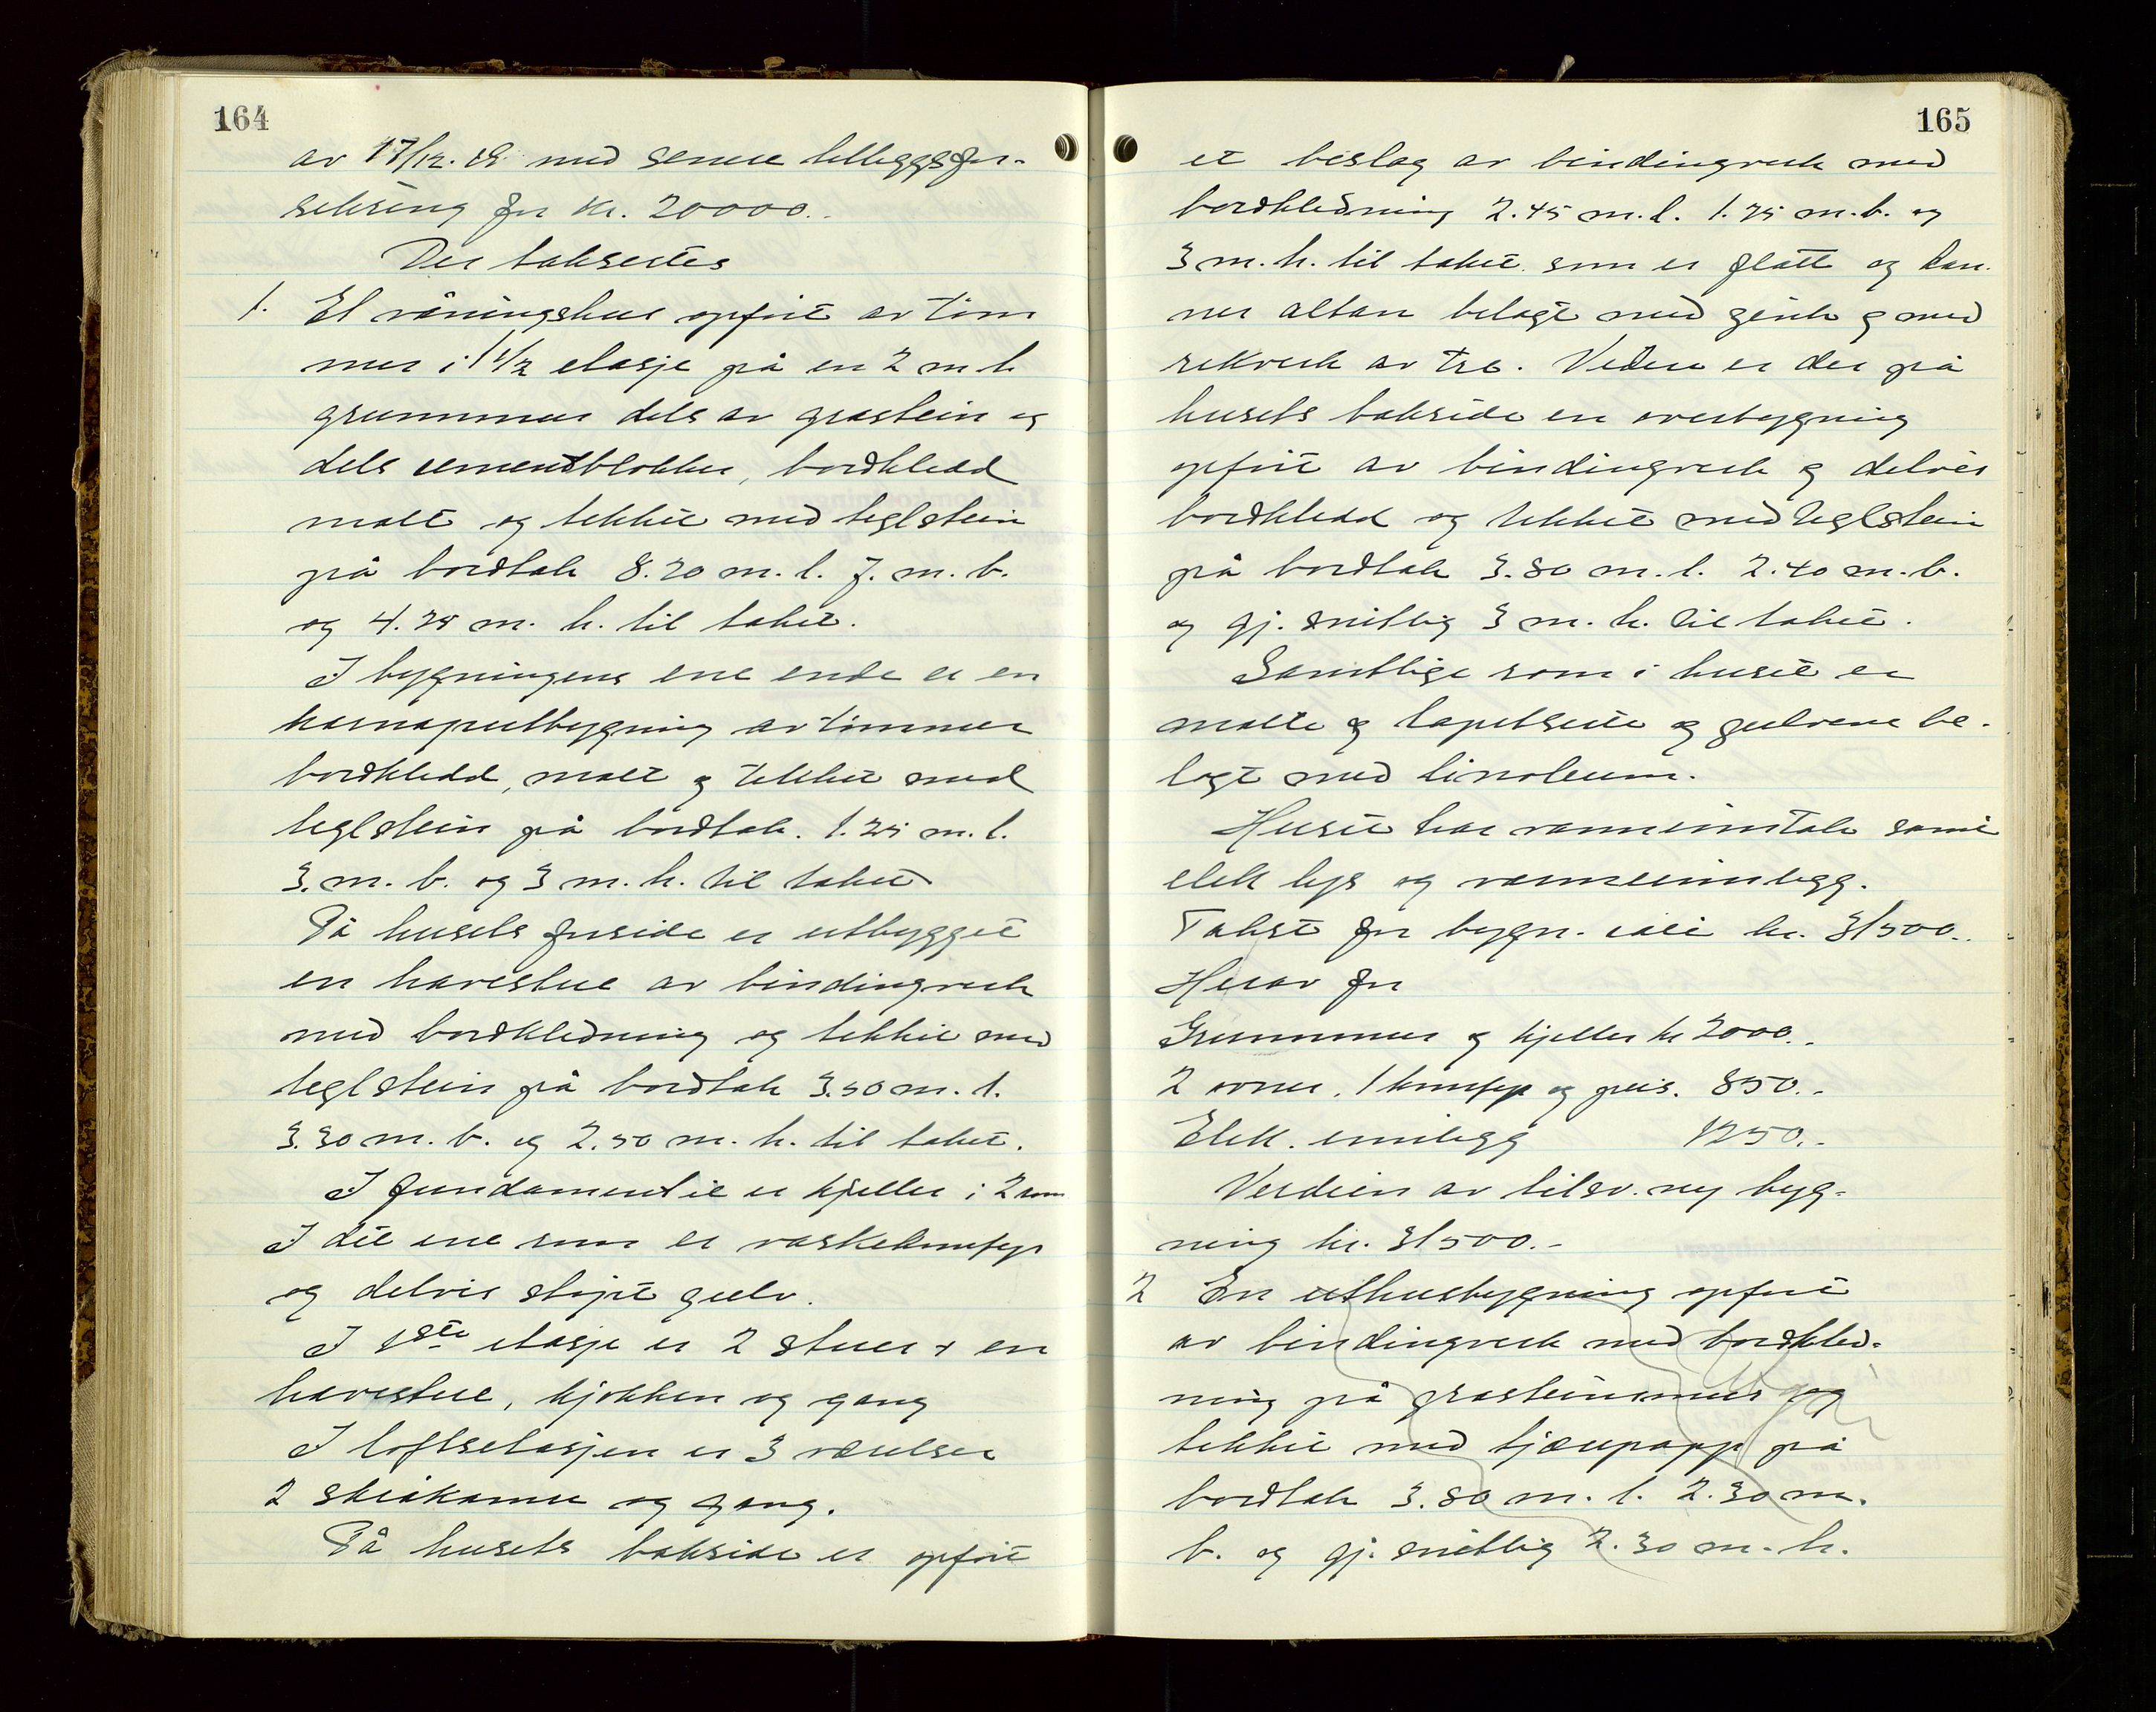 164
av 17/12.19 med senere tilleggsfor-
sikring for kr. 20000.-
Der takseres
1. Et våningshus opført av tøm
mer i 1 1/2 etasje på en 2 m h
grunnmur dels av gråstein og
dels sementblokker, bordkledd
malt og tekket med teglstein
på bordtak 8.20 m. l. 7. m. b.
og 4.75 m. h. til taket.
I bygningens ene ende er en
karnaputbygning av tømmer
bordkledd, malt og tekket med
teglstein på bordtak. 1.25 m. l.
3. m. b. og 3 m. h. til taket
På husets forside er utbygget
en havestue av bindingverk
med bordkledning og tekket med
teglstein på bordtak 3.50 m. l.
3.30 m. b. og 2.50 m. h. til taket.
I fundamentet er kjeller i 2 rom
I det ene rom er vaskekomfyr
og delvis støpt gulv.
I 1ste etasje er 2 stuer + en
havestue, kjøkken og gang
I loftsetasjen er 3 værelser
2 skråkamre og gang.
På husets bakside er opført
165
et beslag av bindingverk med
bordkledning 2.45 m. l. 1.75 m. b. og
3 m. h. til taket som er flatt og dan-
ner altan belagt med zink og med
rekverk av tre. Videre er der på
husets bakside en overbygning
opført av bindingverk og delvis
bordkledd og tekket med teglstein
på bordtak 3.80 m. l. 2.40 m. b.
og gj. snittlig 3 m. h. til taket.
Samtlige rom i huset er
malte og tapetserte og gulvene be-
lagt med linoleum.
Huset har vanninntak samt
elek lys og varmeinnlegg.
Takst for bygn. i alt kr. 31500.-
Herav for
Grunnmur og kjeller kr 2000.-
2 ovner, 1 komfyr og peis. 850.-
Elek. innlegg 1250.-
Verdien av tilsv. ny byg-
ning kr. 31500.-
2 En uthusbygning opført
av bindingverk med bordkled-
ning på gråsteinsmur og
tekket med tjærepapp på
bordtak 3.80 m. l. 2.30 m.
b. og gj. snittlig 2.30 m. h.